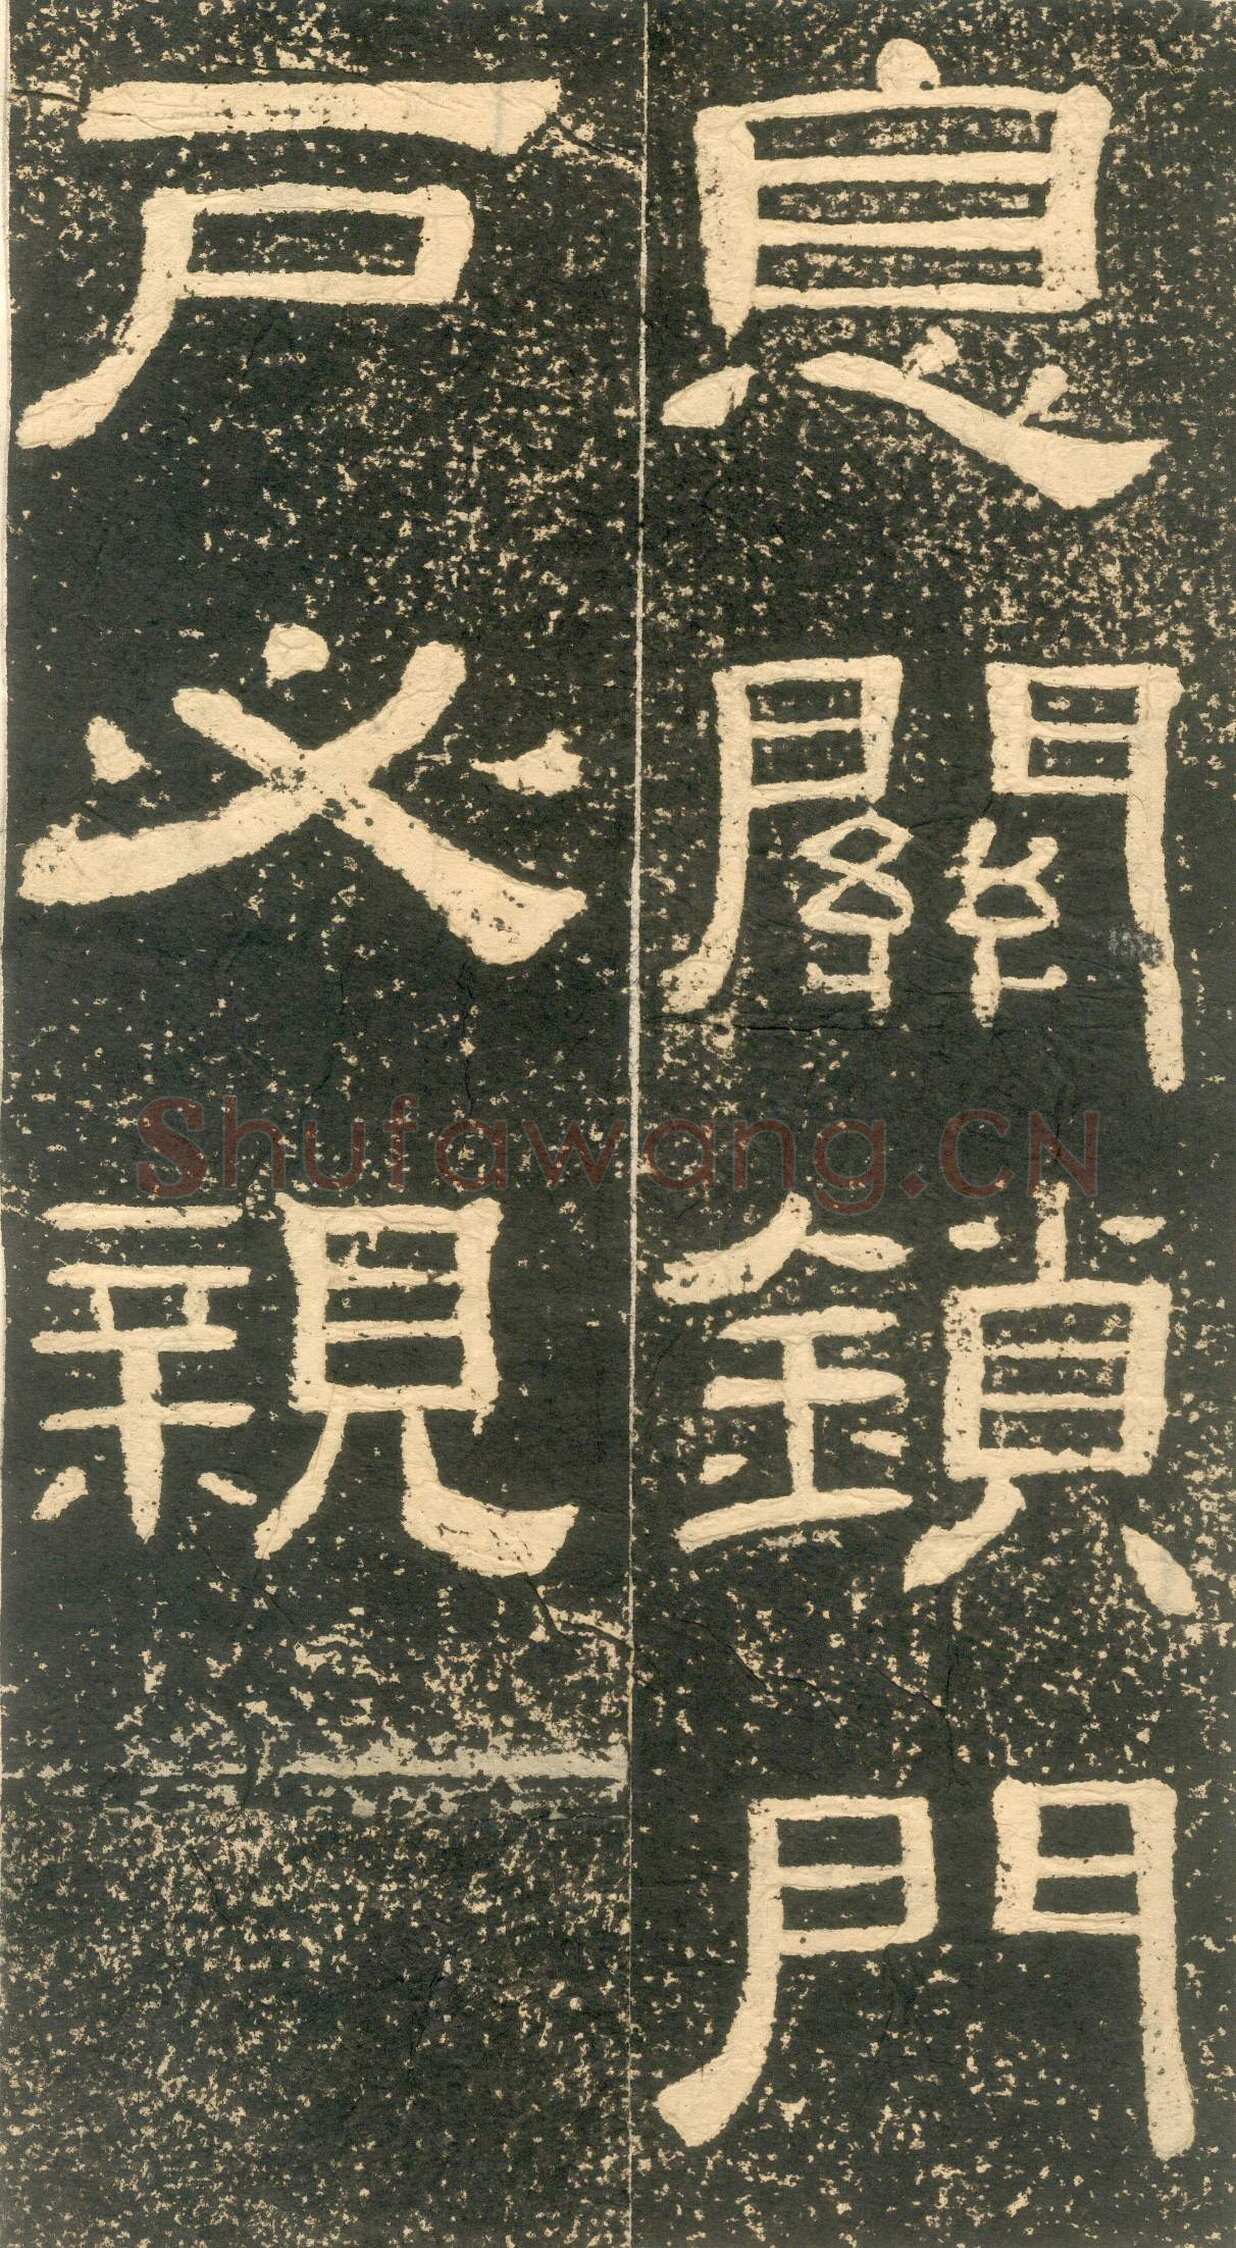 息關鎖門
戶必親
Shufawang.CN